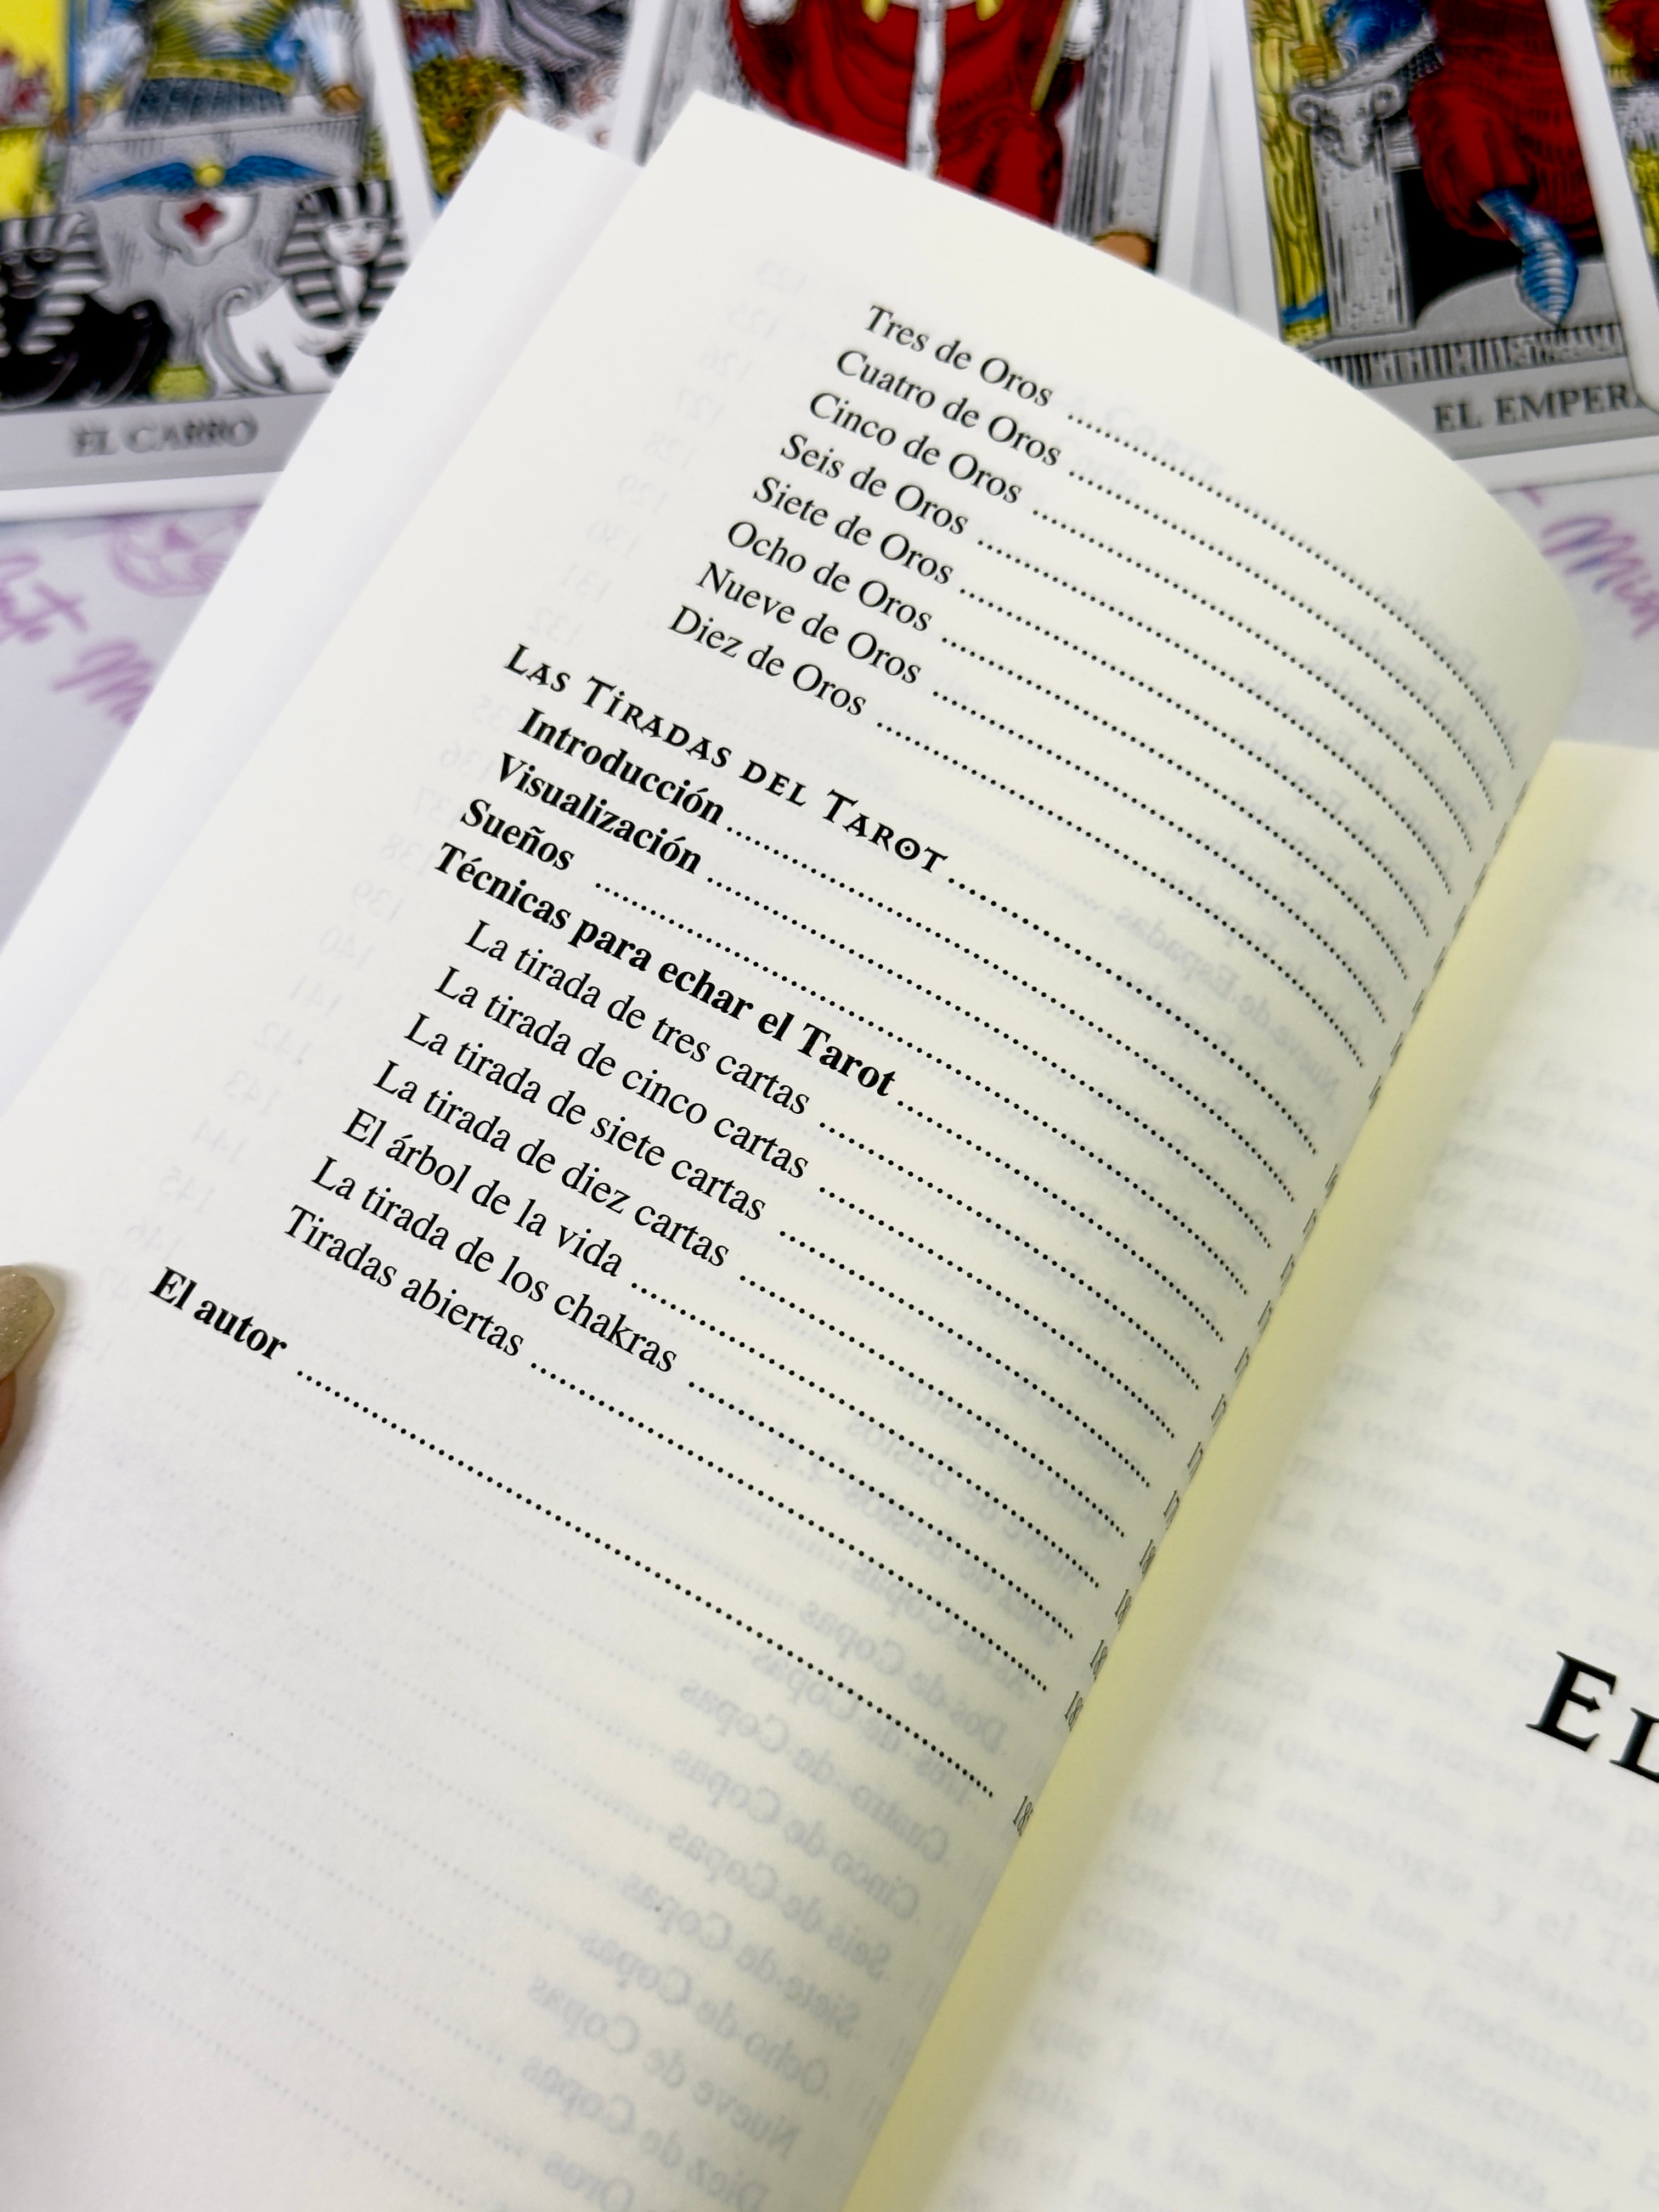 EL CARRO
EL EMPER
Tres de Oros ..........
Cuatro de Oros ..........
Cinco de Oros ..........
Seis de Oros ..........
Siete de Oros ..........
Ocho de Oros ..........
Nueve de Oros ..........
Diez de Oros ..........
LAS TIRADAS DEL TAROT ..........
Introducción ..........
Visualización ..........
Sueños ..........
Técnicas para echar el Tarot ..........
La tirada de tres cartas ..........
La tirada de cinco cartas ..........
La tirada de siete cartas ..........
La tirada de diez cartas ..........
El árbol de la vida ..........
La tirada de los chakras ..........
Tiradas abiertas ..........
El autor ..........
EL